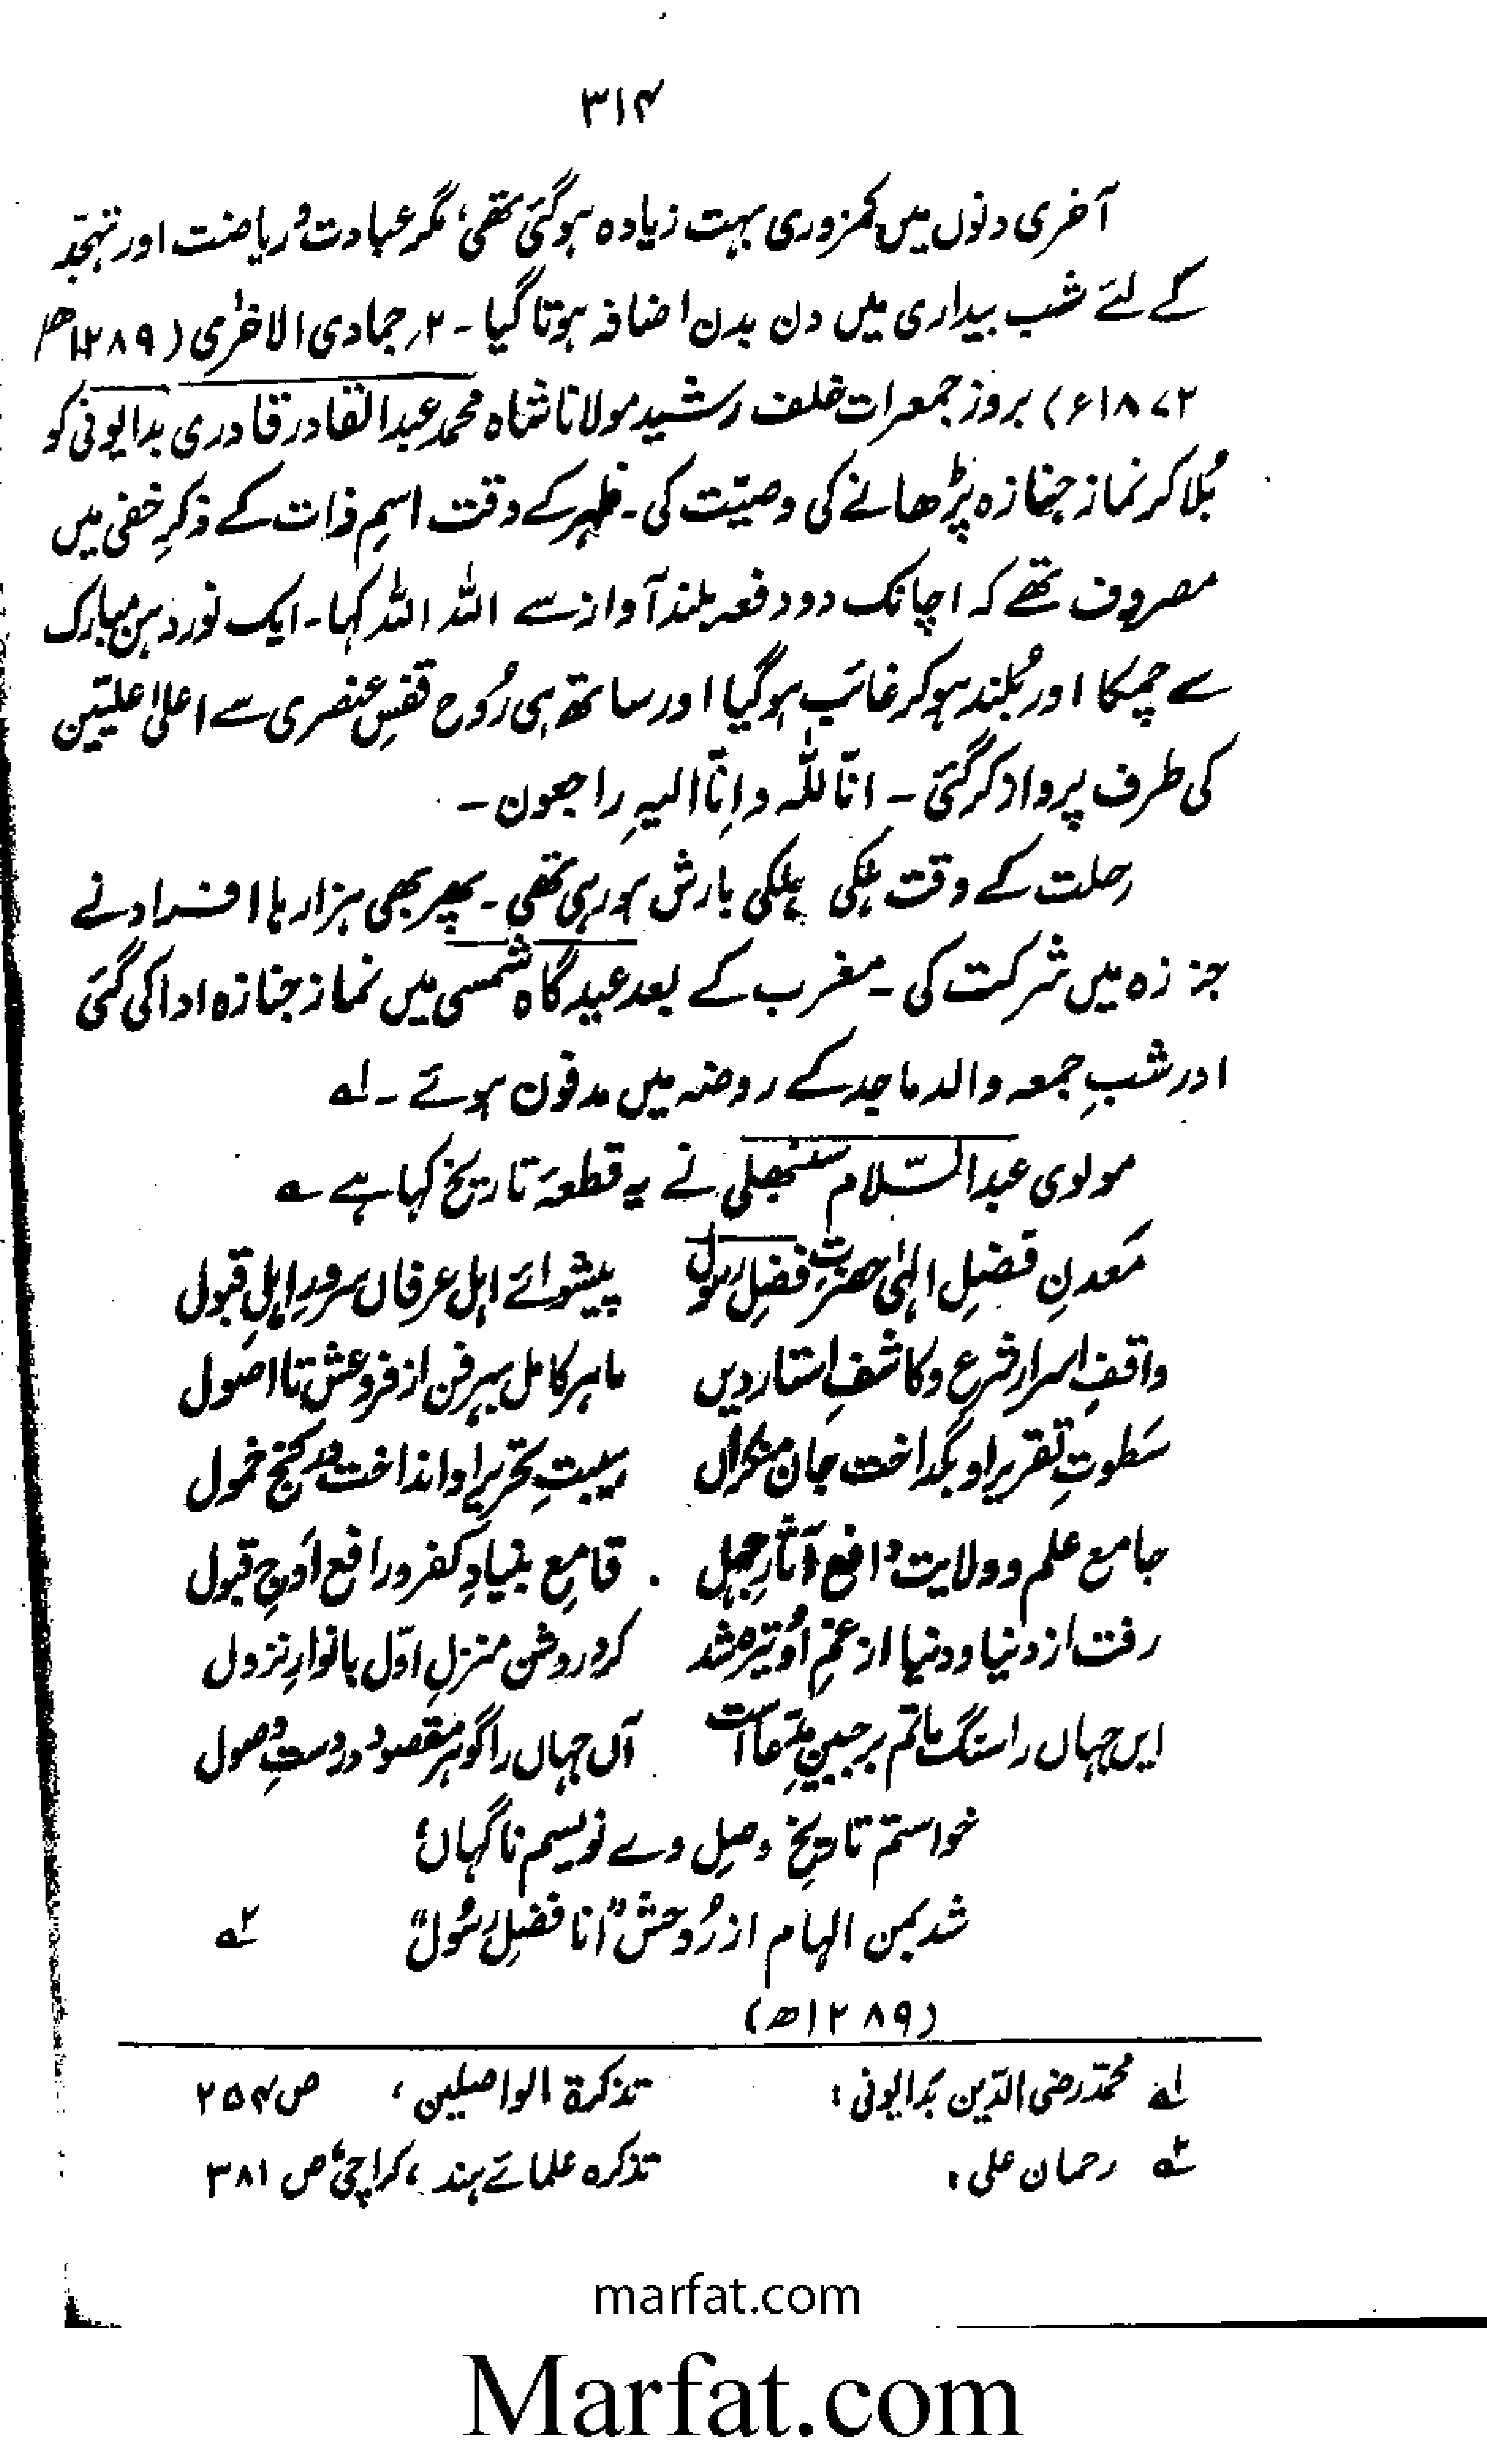 ۳۱۴
آخری دنوں میں کمزوری بہت زیادہ ہوگئی تھی، مگر عبادت و ریاضت اور تہجّد
کے لئے شب بیداری میں دن بدن اضافہ ہوتا گیا ۔ ۲ر جمادی الاخرٰی (۱۲۸۹ھ/
۱۸۷۲ء) بروز جمعرات خلف رشید مولانا شاہ محمد عبدالقادر قادری بدایونی کو
بُلا کر نماز جنازہ پڑھانے کی وصیّت کی ۔ ظہر کے وقت اسمِ ذات کے ذکرِ خفی میں
مصروف تھے کہ اچانک دو دفعہ بلند آواز سے اللہ اللہ کہا ۔ ایک نور دہن مبارک
سے چمکا اور بُلند ہو کر غائب ہوگیا اور ساتھ ہی رُوح قفسِ عنصری سے اعلیٰ علیّین
کی طرف پرواز کر گئی ۔ انّا للہ و اِنّا الیہِ راجعون ۔
رحلت کے وقت ہلکی ہلکی بارش ہو رہی تھی ۔ پھر بھی ہزار ہا افراد نے
جنازہ میں شرکت کی ۔ مغرب کے بعد عیدگاہ شمسی میں نماز جنازہ ادا کی گئی
اور شبِ جمعہ والد ماجد کے روضہ میں مدفون ہوئے ۔ ۱؎
مولوی عبدالسّلام سنبھلی نے یہ قطعۂ تاریخ کہا ہے ؎
مَعدنِ فضلِ الٰہی حضرتِ فضلِ رسول پیشوائے اہل عرفاں سرورِ اہلِ قبول
واقفِ اسرارِ شرع و کاشفِ استار دیں ماہر کامل بہر فن از فروعش تا اصول
سَطوتِ تقریر او بگداخت جان منکراں ہیبتِ تحریر او انداخت در کنج خمول
جامع علم و ولایت دافع آثارِ جہل قامعِ بنیادِ کفر و رافع اَوجِ قبول
رفت از دنیا و دنیا از غمِ اُو تیرہ شد کرد روشن منزلِ اوّل بانوارِ نزول
ایں جہاں را سنگ ماتم بر جبینِ مدّعا است آں جہاں را گوہر مقصود در دستِ وصول
خواستم تاریخِ وصلِ وے نویسم ناگہاں؛
شد بمن الہام از رُوحش "انا فضلِ رسُول" ۲؎
(۱۲۸۹ھ)
۱؎ محمّد رضی الدّین بدایونی: تذکرۃ الواصلین، ص ۲۵۴
۲؎ رحمان علی: تذکرہ علمائے ہند، کراچی، ص ۳۸۱
marfat.com
Marfat.com